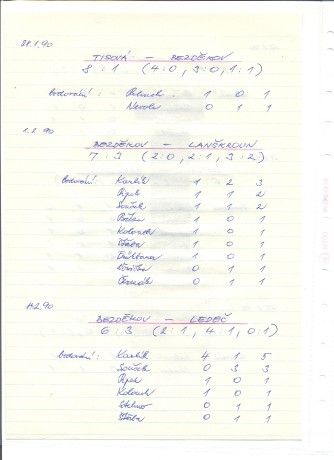 28.1.90
TISOVÁ - BEZDĚKOV
8 : 1 (4:0, 3:0, 1:1)
Bodování: 1 0 1
0 1 1
1.2.90
BEZDĚKOV - LANŠKROUN
7 : 3 (2:0, 2:1, 3:2)
Bodování: Kashík 1 2 3
1 1 2
Souček 1 1 2
1 0 1
Kolouch 1 0 1
Štěba 1 0 1
1 0 1
0 1 1
Čermák 0 1 1
BEZDĚKOV - LEDEČ
6 : 3 (2:1, 4:1, 0:1)
Bodování: Kashík 4 1 5
Souček 0 3 3
1 0 1
Kolouch 1 0 1
0 1 1
Štěba 0 1 1